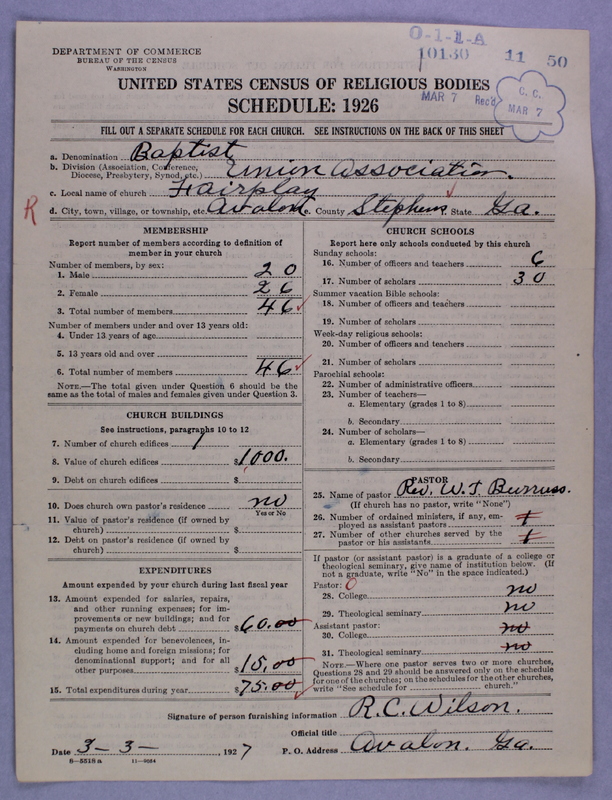 DEPARTMENT OF COMMERCE
BUREAU OF THE CENSUS
WASHINGTON
O-1-1-A
10130 11 50
UNITED STATES CENSUS OF RELIGIOUS BODIES
SCHEDULE: 1926
MAR 7 Rec'd
C. C.
MAR 7
FILL OUT A SEPARATE SCHEDULE FOR EACH CHURCH. SEE INSTRUCTIONS ON THE BACK OF THIS SHEET
a. Denomination Baptist
b. Division (Association, Conference, Diocese, Presbytery, Synod, etc.) Union Association.
c. Local name of church Fairplay
R d. City, town, village, or township, etc. Avalon e. County Stephens State Ga.
MEMBERSHIP
Report number of members according to definition of
member in your church
Number of members, by sex:
1. Male 20
2. Female 26
3. Total number of members 46
Number of members under and over 13 years old:
4. Under 13 years of age
5. 13 years old and over
6. Total number of members 46
NOTE.—The total given under Question 6 should be the
same as the total of males and females given under Question 3.
CHURCH BUILDINGS
See instructions, paragraphs 10 to 12
7. Number of church edifices 1
8. Value of church edifices $1000.
9. Debt on church edifices $
10. Does church own pastor's residence no
Yes or No
11. Value of pastor's residence (if owned by
church) $
12. Debt on pastor's residence (if owned by
church) $
EXPENDITURES
Amount expended by your church during last fiscal year
13. Amount expended for salaries, repairs,
and other running expenses; for im-
provements or new buildings; and for
payments on church debt $60.00
14. Amount expended for benevolences, in-
cluding home and foreign missions; for
denominational support; and for all
other purposes $15.00
15. Total expenditures during year $75.00
CHURCH SCHOOLS
Report here only schools conducted by this church
Sunday schools:
16. Number of officers and teachers 6
17. Number of scholars 30
Summer vacation Bible schools:
18. Number of officers and teachers
19. Number of scholars
Week-day religious schools:
20. Number of officers and teachers
21. Number of scholars
Parochial schools:
22. Number of administrative officers
23. Number of teachers—
a. Elementary (grades 1 to 8)
b. Secondary
24. Number of scholars—
a. Elementary (grades 1 to 8)
b. Secondary
PASTOR
25. Name of pastor Rev. W. T. Burruss.
(If church has no pastor, write "None")
26. Number of ordained ministers, if any, em-
ployed as assistant pastors
27. Number of other churches served by the
pastor or his assistants
If pastor (or assistant pastor) is a graduate of a college or
theological seminary, give name of institution below. (If
not a graduate, write "No" in the space indicated.)
Pastor: 0
28. College no
29. Theological seminary no
Assistant pastor:
30. College no
31. Theological seminary no
NOTE.—Where one pastor serves two or more churches,
Questions 28 and 29 should be answered only on the schedule
for one of the churches; on the schedules for the other churches,
write "See schedule for church."
Signature of person furnishing information R. C. Wilson.
Official title
Date 3-3- 1927 P. O. Address Avalon. Ga.
8—5518 a 11—9064